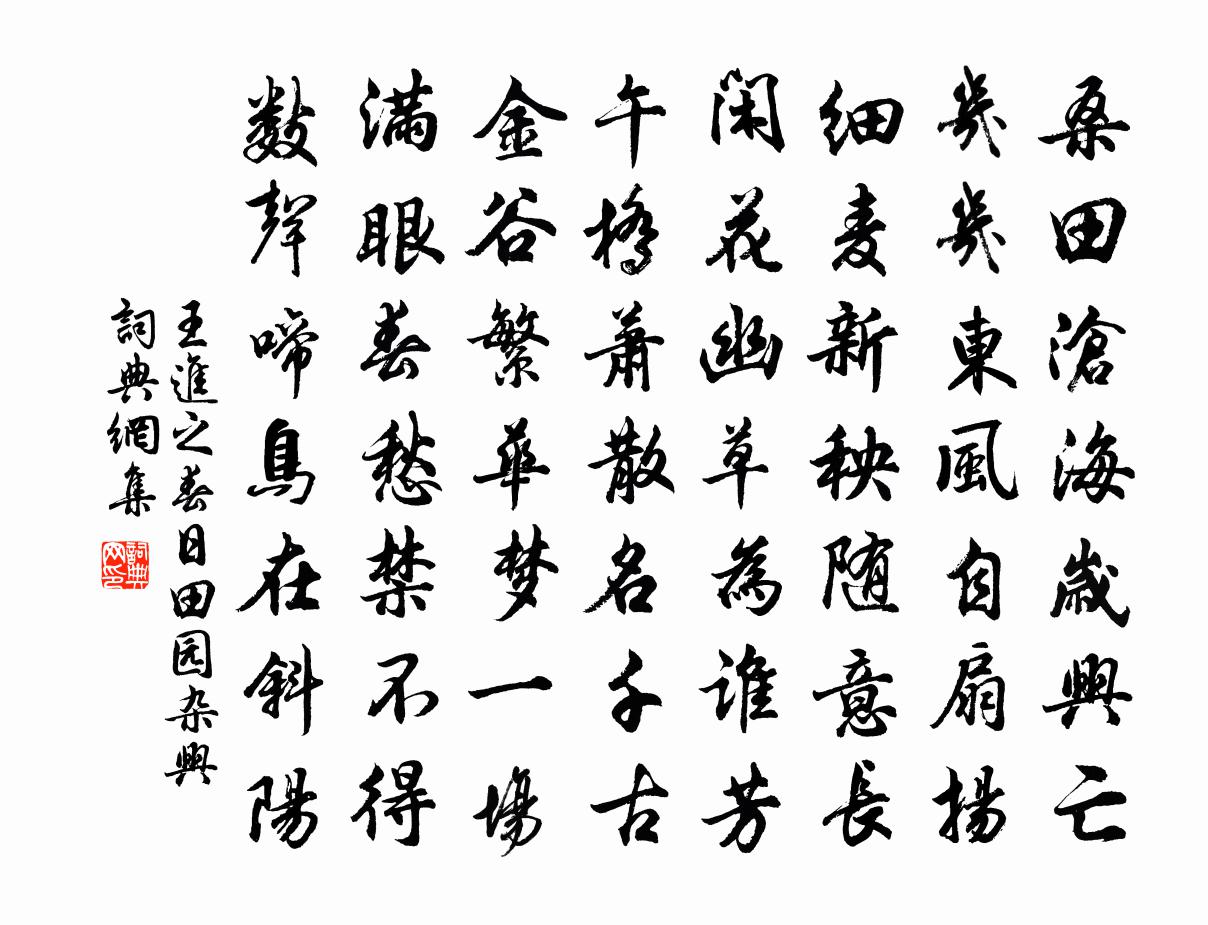 桑田滄海歲興亡
幾幾東風自扇揚
细麦新秧随意長
閑花幽草為誰芳
午橋蕭散名千古
金谷繁華梦一場
滿眼春愁禁不得
数聲啼鳥在斜陽
王進之春日田园杂興
詞典網集
詞典网印